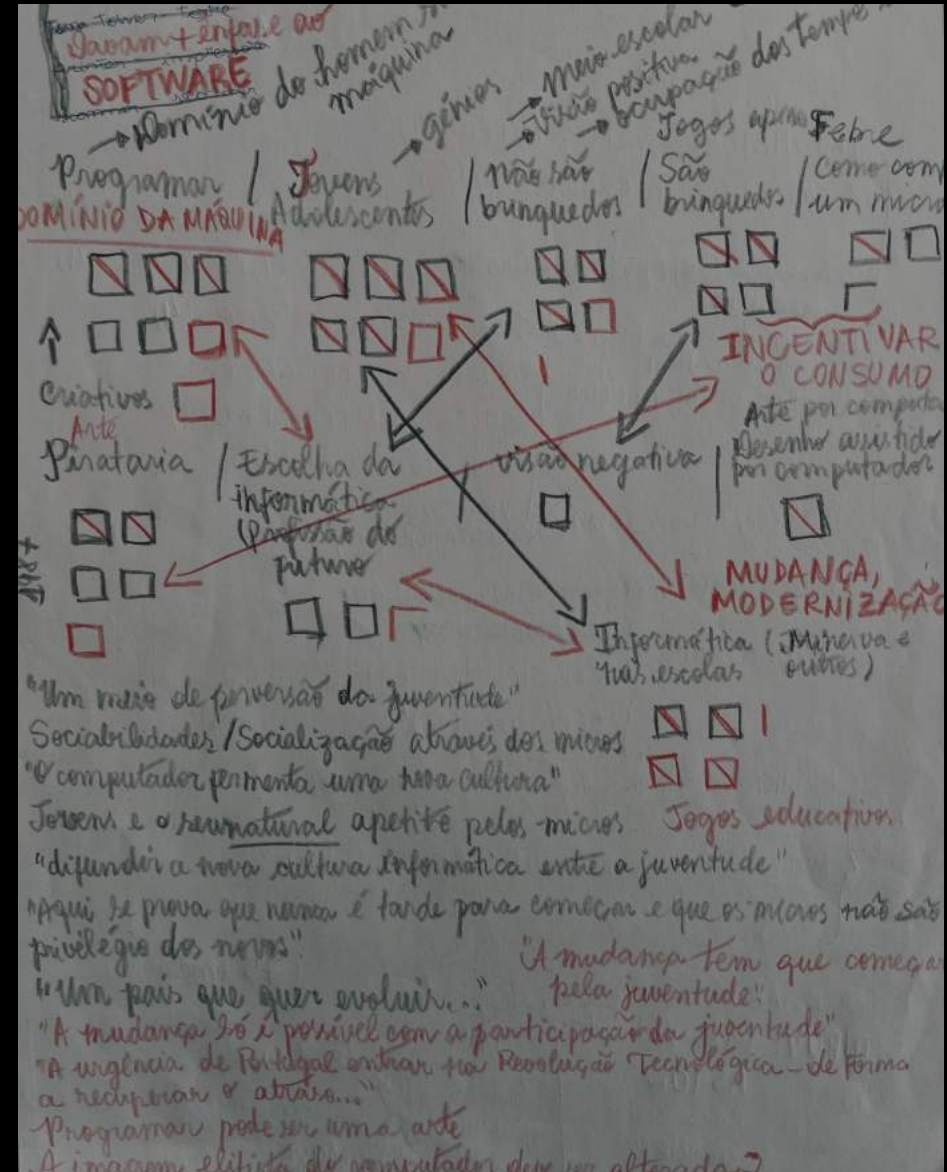 Davam + enfase ao
SOFTWARE
→ Domínio do homem
máquina
→ génios
→ meio escolar
→ visão positiva
→ ocupação dos tempos
Programar / Jovens / não são / Jogos apenas / Febre
DOMÍNIO DA MÁQUINA Adolescentes / brinquedos / São brinquedos / Como com
um micro
INCENTIVAR
O CONSUMO
Criativos
Arte
Pirataria / Escolha da / visão negativa / Arte por computa
informática Desenho assistido
(Profissão do por computador
futuro
MUDANÇA,
MODERNIZAÇÃO
Informática (Minerva e
nas escolas outros)
"Um meio de perversão da juventude"
Sociabilidades/Socialização através dos micros
"O computador fermenta uma nova cultura"
Jovens e o seu natural apetite pelos micros Jogos educativos
"difundir a nova cultura informática entre a juventude"
"Aqui se prova que nunca é tarde para começar e que os micros não são
privilégio dos novos"
"A mudança tem que começar
pela juventude"
"Um país que quer evoluir..."
"A mudança só é possível com a participação da juventude"
"A urgência de Portugal entrar na Revolução Tecnológica - de forma
a recuperar o atraso..."
Programar pode ser uma arte
A imagem elitista do computador deve ser alterada?